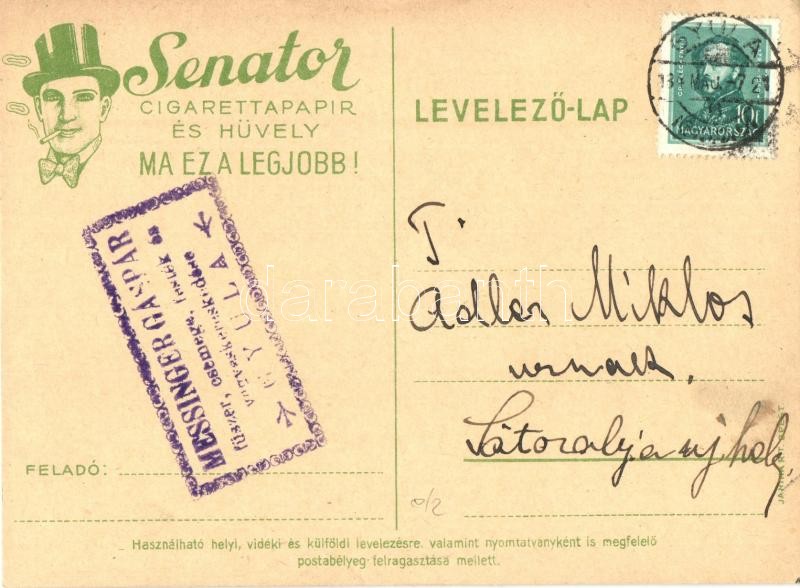 Senator
CIGARETTAPAPIR
ÉS HÜVELY
MA EZ A LEGJOBB!
LEVELEZŐ-LAP
GYULA
10f
MAGYARORSZÁG
MESSINGER GÁSPÁR
fűszer, csemege, festék és
vegyeskereskedése
GYULA
darabanth
T.
Adler Miklos
urnak,
Sátoraljaujhely
FELADÓ:
0/2
Használható helyi, vidéki és külföldi levelezésre, valamint nyomtatványként is megfelelő
postabélyeg felragasztása mellett.